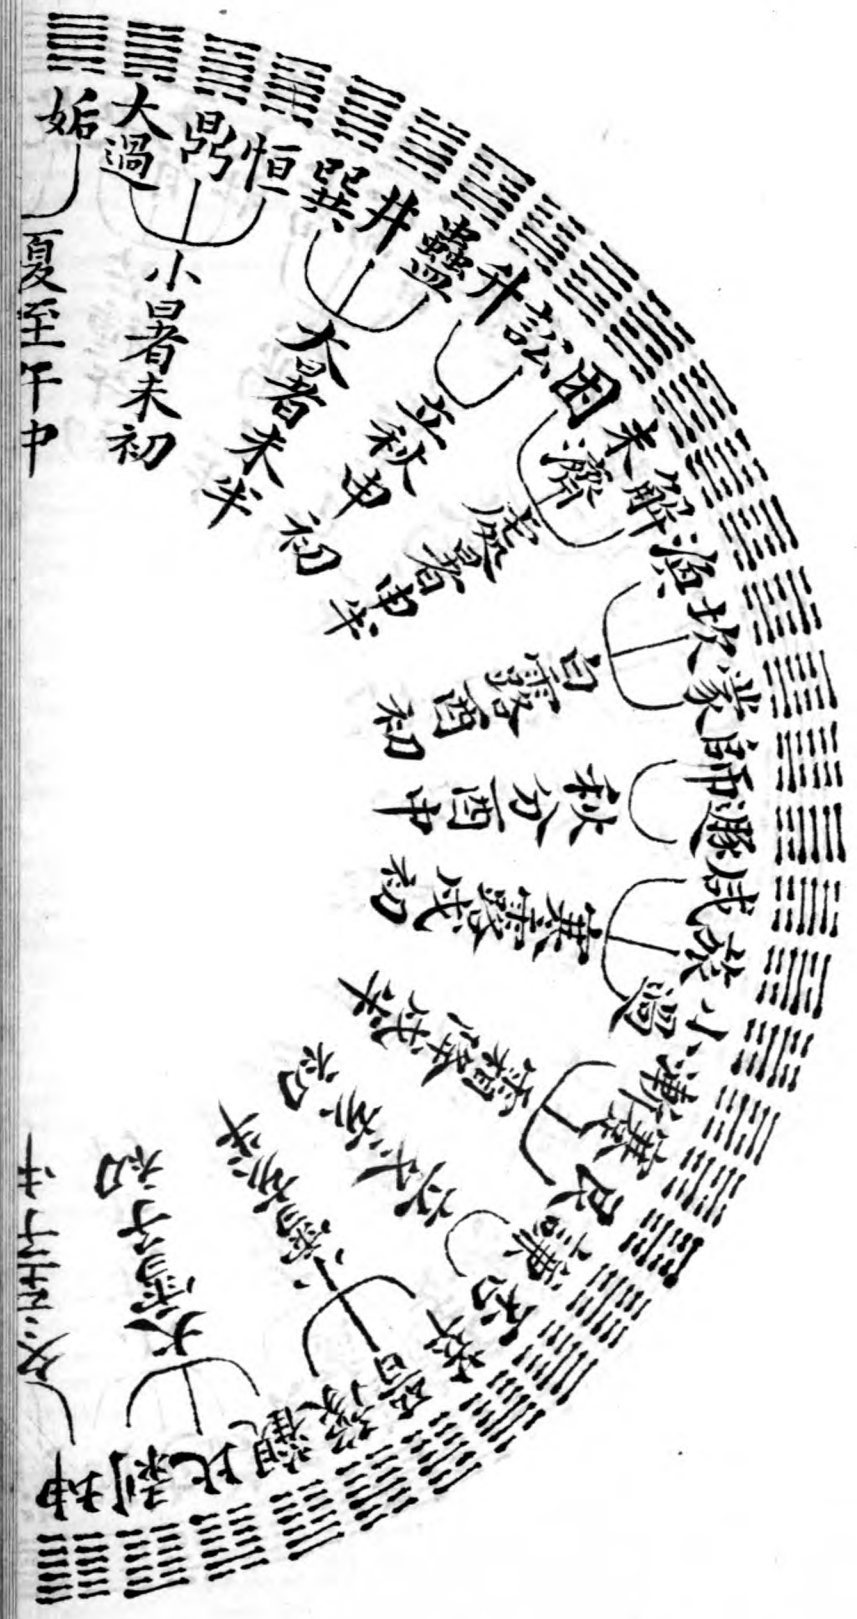 姤
大過
鼎
恒
巽
井
蠱
升
訟
困
未濟
解
渙
坎
蒙
師
遯
咸
旅
小過
漸
蹇
艮
謙
否
萃
晉
豫
觀
比
剥
坤
夏至午中
小暑未初
大暑未半
立秋申初
處暑申半
白露酉初
秋分酉中
寒露戌初
霜降戌半
立冬亥初
小雪亥半
大雪子初
冬至子半